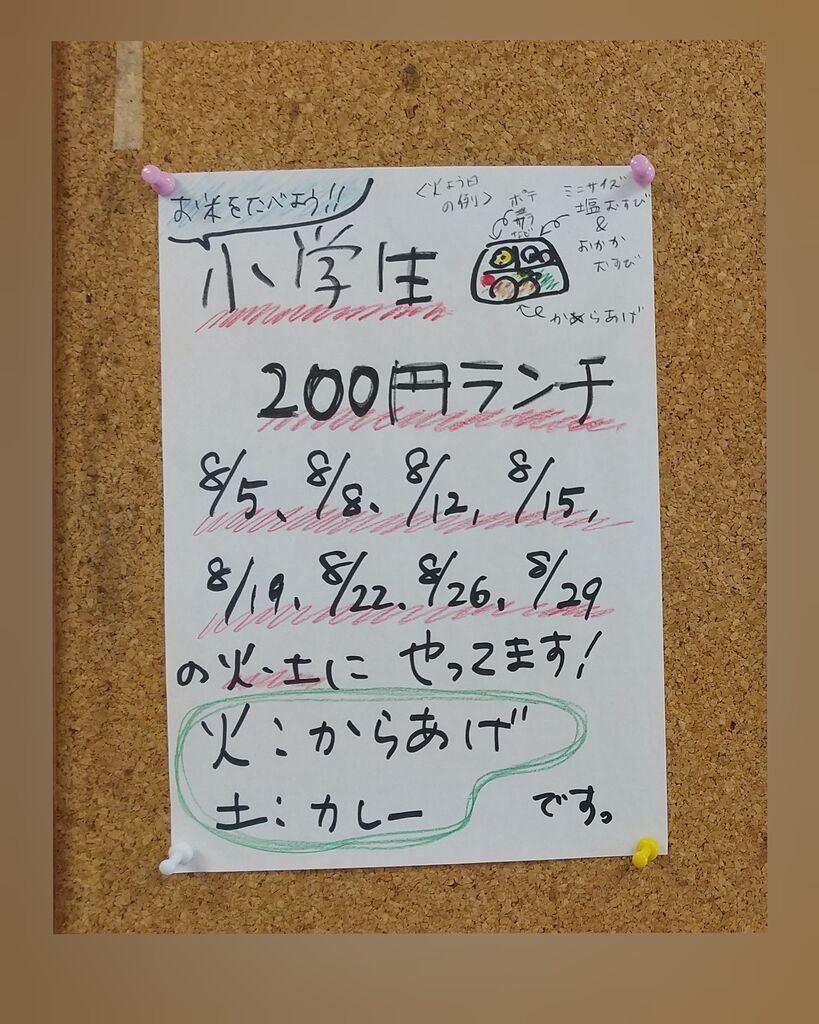 お米をたべよう!!
<火よう日
の例>
ポテ
サラ
など
ミニサイズ
塩むすび
&
おかか
むすび
からあげ
小学生
200円ランチ
8/5、8/8、8/12、8/15、
8/19、8/22、8/26、8/29
の火・土に やってます!
火:からあげ
土:カレー です。